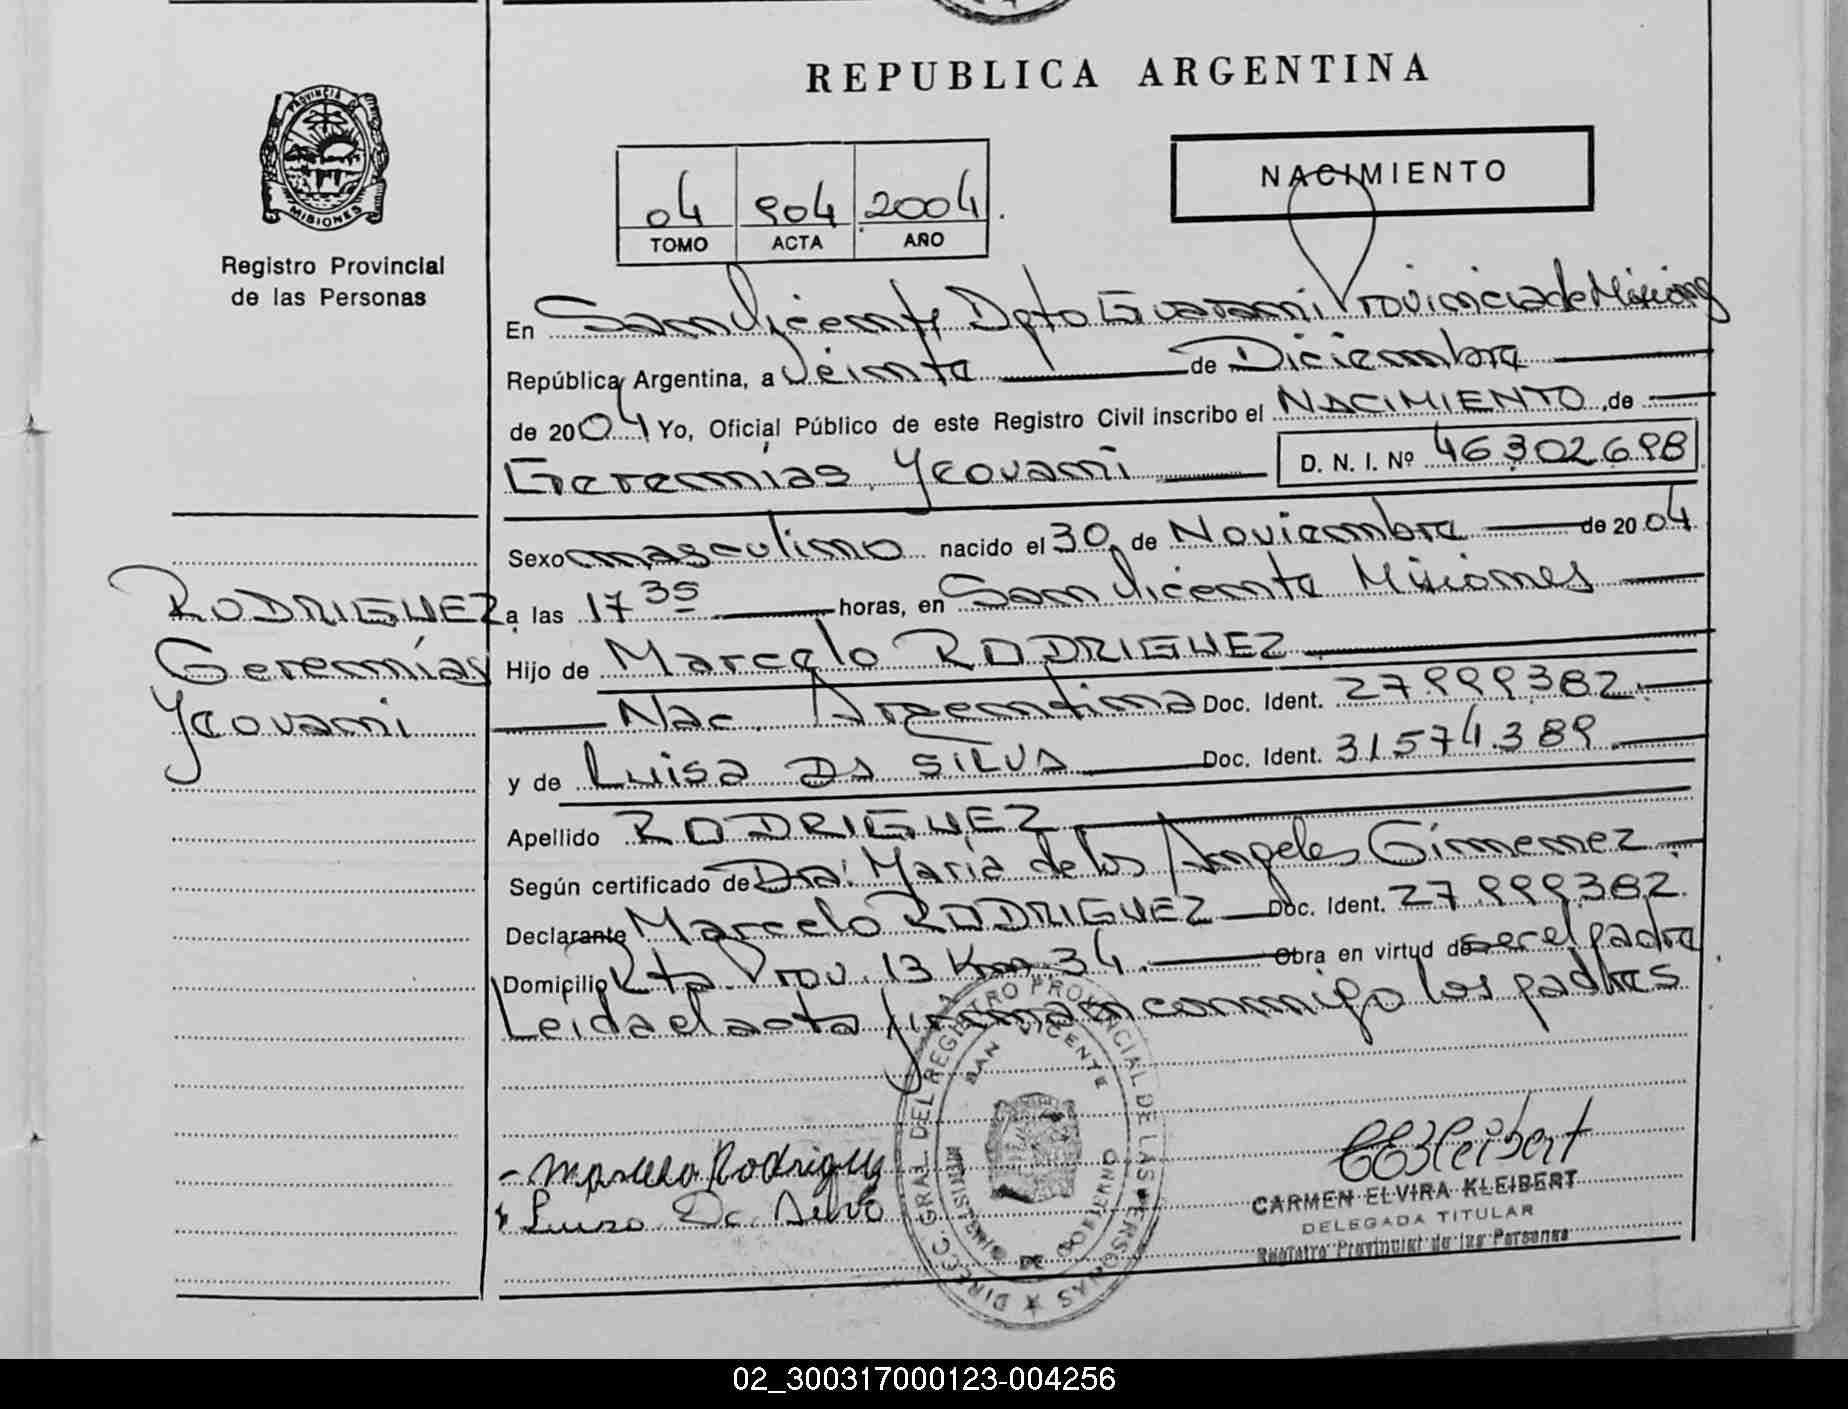 REPUBLICA ARGENTINA
PROVINCIA DE
MISIONES
Registro Provincial
de las Personas
04 904 2004
TOMO ACTA AÑO
NACIMIENTO
En San Vicente Dpto Guarani Provincia de Misiones
República Argentina, a Veinte de Diciembre
de 2004 Yo, Oficial Público de este Registro Civil inscribo el NACIMIENTO, de
Geremías, Yeovani D. N. I. Nº 46302698
Sexo masculino nacido el 30 de Noviembre de 2004
a las 17 35 horas, en San Vicente Misiones
RODRIGUEZ
Geremías
Yeovani
Hijo de Marcelo RODRIGUEZ
Nac. Argentina Doc. Ident. 27.999.382.
y de Luisa DA SILVA Doc. Ident. 31.574.389
Apellido RODRIGUEZ
Según certificado de Dra. María de los Angeles Gimenez
Declarante Marcelo RODRIGUEZ Doc. Ident. 27.999.382.
Domicilio Rta. Prov. 13 Km 34. Obra en virtud de ser el padre
Leida el acta firman conmigo los padres
DIRECC. GRAL. DEL REGISTRO PROVINCIAL DE LAS PERSONAS
SAN VICENTE
MINISTERIO DE GOBIERNO
Marcelo Rodriguez
Luisa Da Silva
CEKleibert
CARMEN ELVIRA KLEIBERT
DELEGADA TITULAR
Registro Provincial de las Personas
02_300317000123-004256